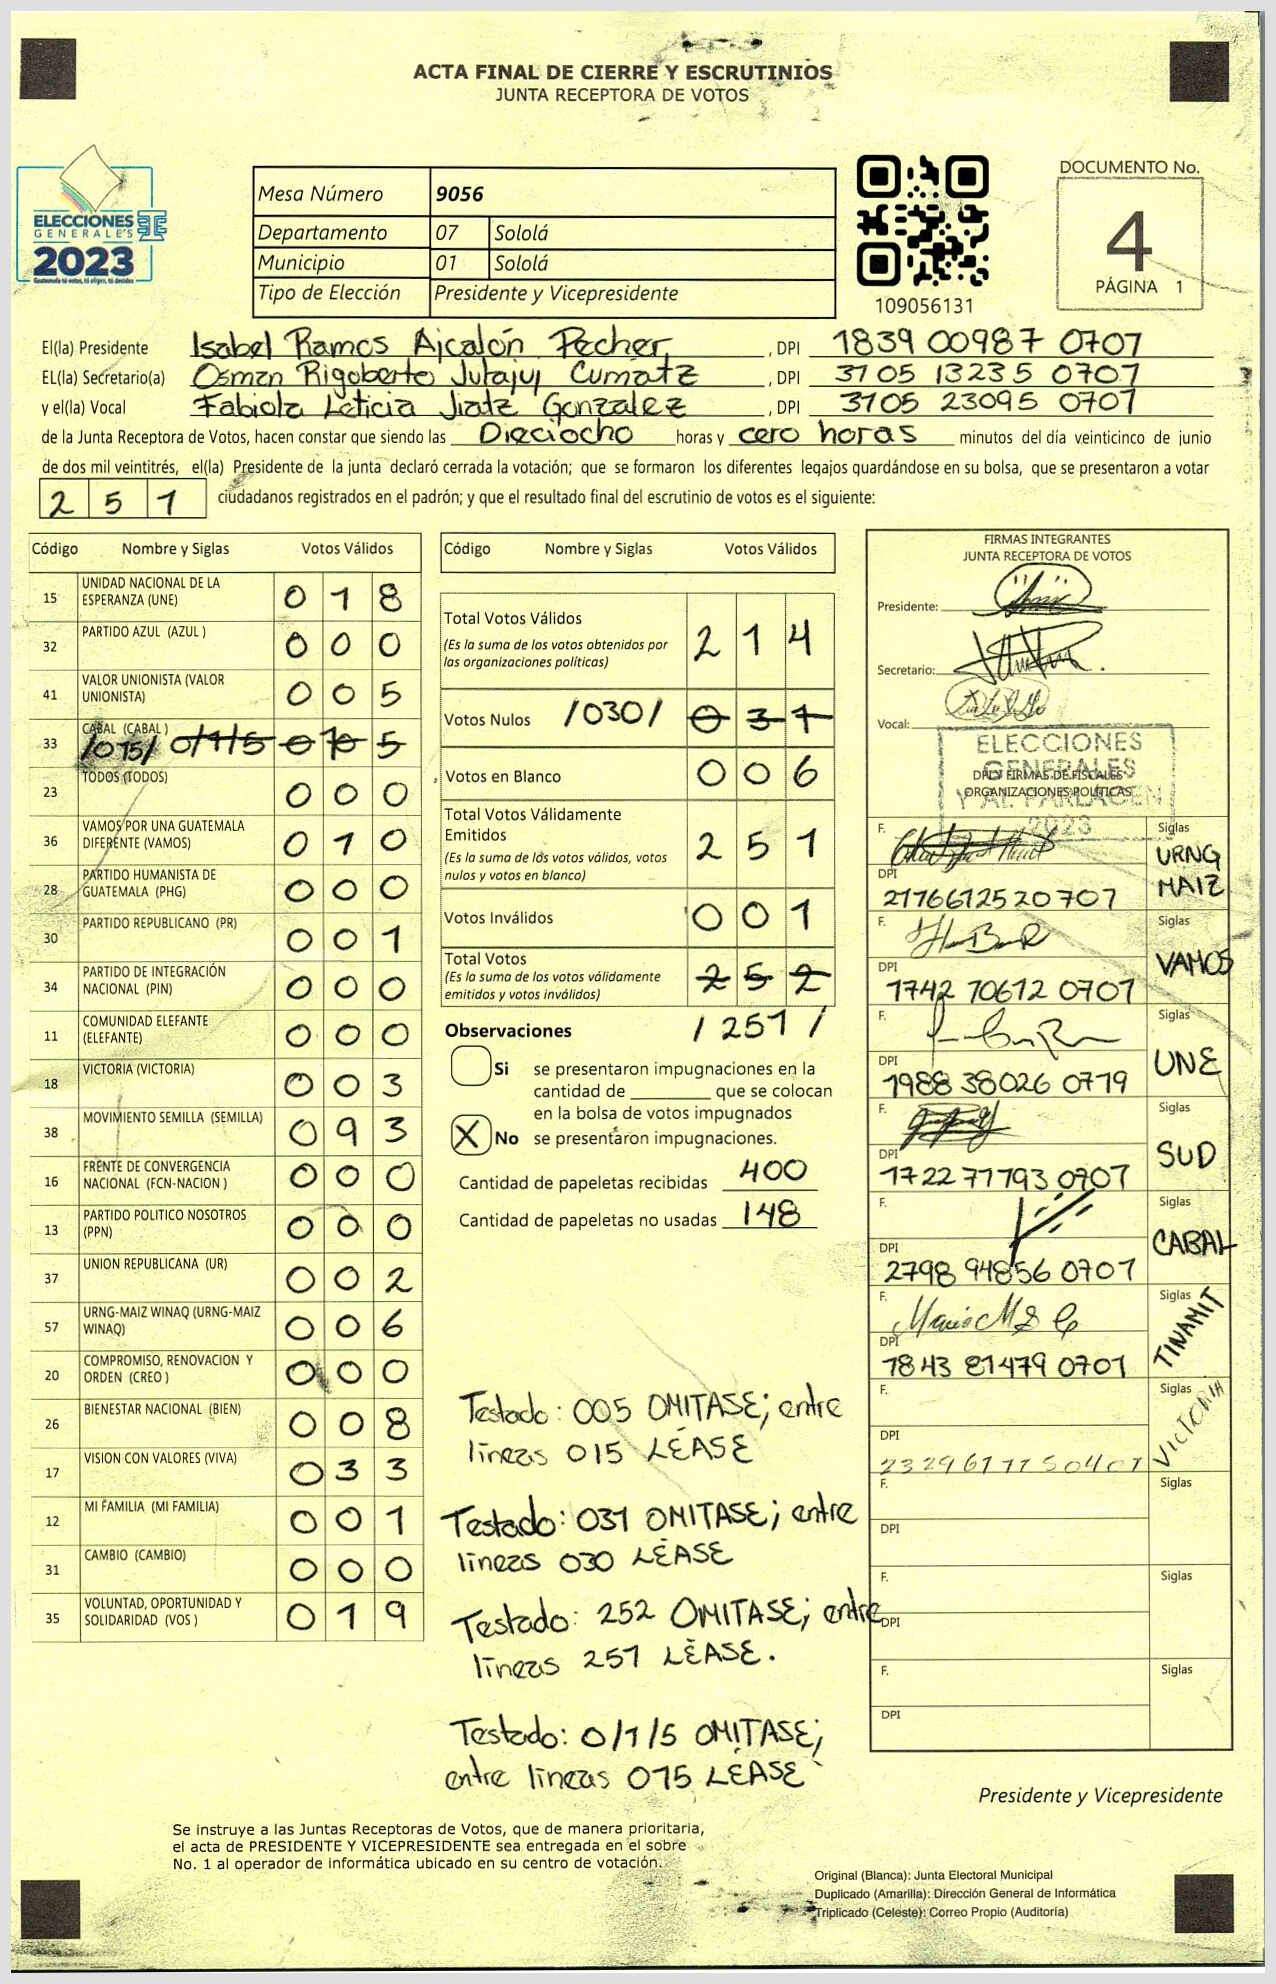 ACTA FINAL DE CIERRE Y ESCRUTINIOS
JUNTA RECEPTORA DE VOTOS
ELECCIONES
GENERALES
2023
Guatemala tú votas, tú eliges, tú decides
Mesa Número 9056
Departamento 07 Sololá
Municipio 01 Sololá
Tipo de Elección Presidente y Vicepresidente
109056131
DOCUMENTO No.
4
PÁGINA 1
El(la) Presidente Isabel Ramos Ajcalón Pecher, DPI 1839 00987 0707
EL(la) Secretario(a) Osman Rigoberto Julajuj Cumatz, DPI 3105 13235 0707
y el(la) Vocal Fabiola Leticia Jiatz Gonzalez, DPI 3105 23095 0701
de la Junta Receptora de Votos, hacen constar que siendo las Dieciocho horas y cero horas minutos del día veinticinco de junio
de dos mil veintitrés, el(la) Presidente de la junta declaró cerrada la votación; que se formaron los diferentes legajos guardándose en su bolsa, que se presentaron a votar
251 ciudadanos registrados en el padrón; y que el resultado final del escrutinio de votos es el siguiente:
Código Nombre y Siglas Votos Válidos
15 UNIDAD NACIONAL DE LA ESPERANZA (UNE) 018
32 PARTIDO AZUL (AZUL ) 000
41 VALOR UNIONISTA (VALOR UNIONISTA) 005
33 CABAL (CABAL ) /015/ 0/1/5 0 5
23 TODOS (TODOS) 000
36 VAMOS POR UNA GUATEMALA DIFERENTE (VAMOS) 010
28 PARTIDO HUMANISTA DE GUATEMALA (PHG) 000
30 PARTIDO REPUBLICANO (PR) 001
34 PARTIDO DE INTEGRACIÓN NACIONAL (PIN) 000
11 COMUNIDAD ELEFANTE (ELEFANTE) 000
18 VICTORIA (VICTORIA) 003
38 MOVIMIENTO SEMILLA (SEMILLA) 093
16 FRENTE DE CONVERGENCIA NACIONAL (FCN-NACION ) 000
13 PARTIDO POLITICO NOSOTROS (PPN) 000
37 UNION REPUBLICANA (UR) 002
57 URNG-MAIZ WINAQ (URNG-MAIZ WINAQ) 006
20 COMPROMISO, RENOVACION Y ORDEN (CREO ) 000
26 BIENESTAR NACIONAL (BIEN) 008
17 VISION CON VALORES (VIVA) 033
12 MI FAMILIA (MI FAMILIA) 001
31 CAMBIO (CAMBIO) 000
35 VOLUNTAD, OPORTUNIDAD Y SOLIDARIDAD (VOS ) 019
Código Nombre y Siglas Votos Válidos
Total Votos Válidos 214
(Es la suma de los votos obtenidos por
las organizaciones políticas)
Votos Nulos /030/ 031
Votos en Blanco 006
Total Votos Válidamente
Emitidos 251
(Es la suma de los votos válidos, votos
nulos y votos en blanco)
Votos Inválidos 001
Total Votos 252
(Es la suma de los votos válidamente
emitidos y votos inválidos)
/251/
Observaciones
Si se presentaron impugnaciones en la
cantidad de ________ que se colocan
en la bolsa de votos impugnados
X No se presentaron impugnaciones.
Cantidad de papeletas recibidas 400
Cantidad de papeletas no usadas 148
Testado: 005 OMITASE; entre
líneas 015 LÉASE
Testado: 031 OMITASE; entre
líneas 030 LÉASE
Testado: 252 OMITASE; entre
líneas 251 LÉASE.
Testado: 0/1/5 OMITASE;
entre líneas 015 LÉASE
FIRMAS INTEGRANTES
JUNTA RECEPTORA DE VOTOS
Presidente:
Secretario:
Vocal:
ELECCIONES
GENERALES
Y AL PARLACEN
2023
FIRMAS DE FISCALES
ORGANIZACIONES POLÍTICAS
F. Siglas URNG MAIZ
DPI 2176612520707
F. Siglas VAMOS
DPI 1742 70612 0701
F. Siglas UNE
DPI 1988 38026 0719
F. Siglas SUD
DPI 1722 77793 0707
F. Siglas CABAL
DPI 2798 94856 0701
F. Siglas TINAMIT
DPI 1843 81479 0701
F. Siglas VICTORIA
DPI 2329617750401
F. Siglas
DPI
F. Siglas
DPI
F. Siglas
DPI
Presidente y Vicepresidente
Se instruye a las Juntas Receptoras de Votos, que de manera prioritaria,
el acta de PRESIDENTE Y VICEPRESIDENTE sea entregada en el sobre
No. 1 al operador de informática ubicado en su centro de votación.
Original (Blanca): Junta Electoral Municipal
Duplicado (Amarilla): Dirección General de Informática
Triplicado (Celeste): Correo Propio (Auditoría)